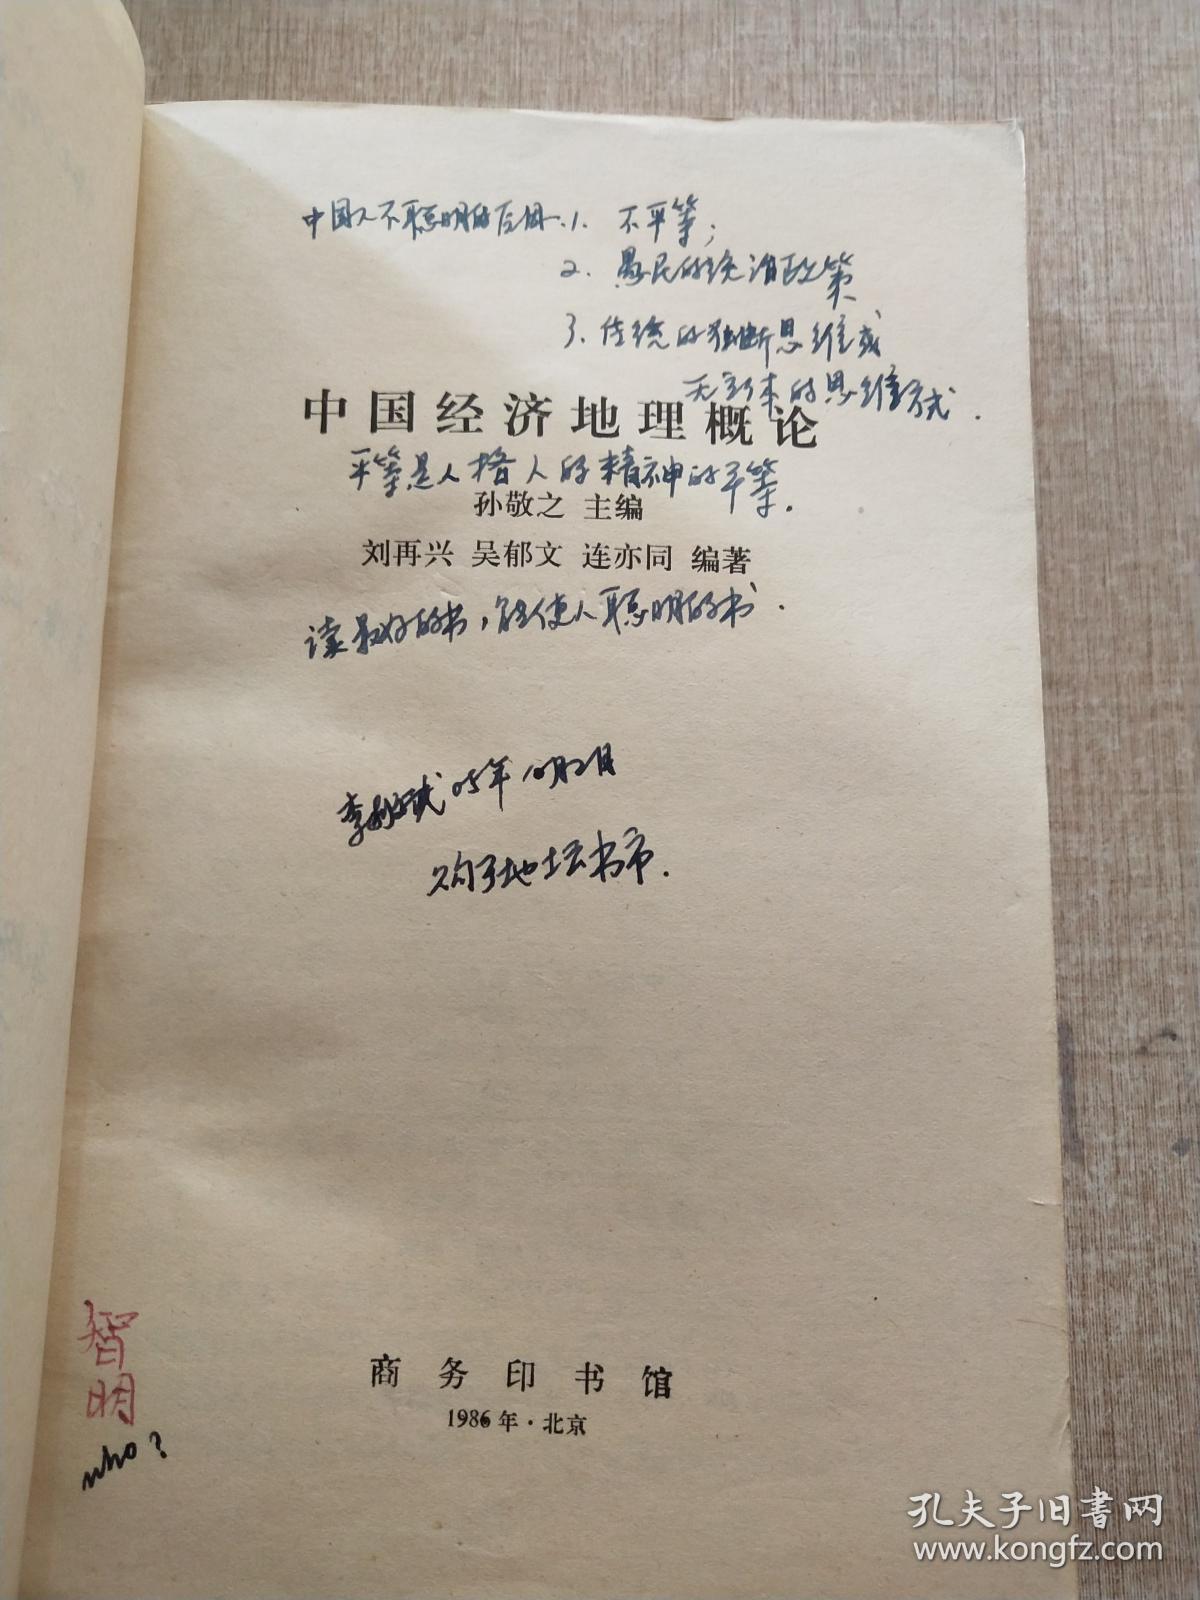 中国人不聪明的原因.1. 不平等;
2. 愚民的统治政策
3. 传统的独断思维或
无逻辑的思维方式.
中国经济地理概论
平等是人格人的精神的平等.
孙敬之 主编
刘再兴 吴郁文 连亦同 编著
读最好的书,能使人聪明的书.
李 05年10月2日
购于地坛书市.
智
明
who?
商务印书馆
1986年·北京
孔夫子旧书网
www.kongfz.com